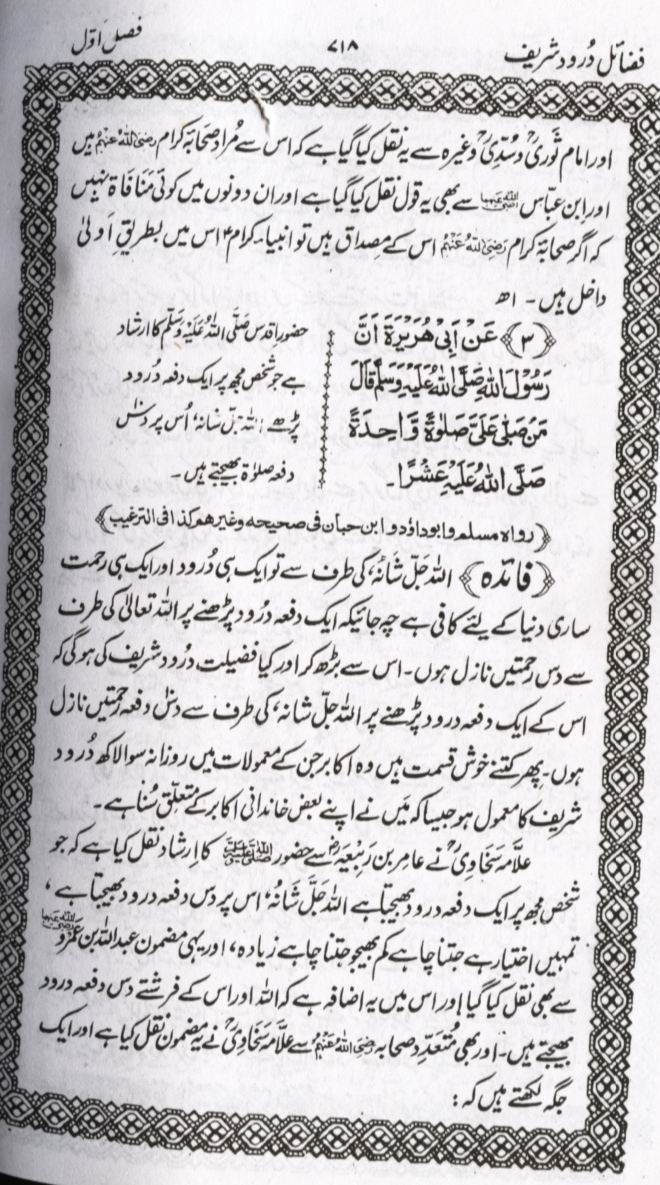 فضائل درود شریف
۷۱۸
فصل اوّل
اور امام ثوریؒ و سُدّیؒ وغیرہ سے یہ نقل کیا گیا ہے کہ اس سے مُراد صحابۂ کرام رضی اللہ عنہم ہیں
اور ابن عبّاس رضی اللہ عنہما سے بھی یہ قول نقل کیا گیا ہے اور ان دونوں میں کوئی مَنافاۃ نہیں
کہ اگر صحابۂ کرام رضی اللہ عنہم اس کے مصداق ہیں تو انبیاء کرامؑ اس میں بطریقِ اَولیٰ
داخل ہیں۔ اھ
﴿۳﴾ عَنْ اَبِیْ هُرَیْرَةَ اَنَّ
رَسُوْلَ اللهِ صَلَّی اللهُ عَلَیْهِ وَسَلَّمَ قَالَ
مَنْ صَلّٰی عَلَیَّ صَلٰوةً وَّاحِدَةً
صَلَّی اللهُ عَلَیْهِ عَشْرًا۔
حضورِ اقدس صَلَّی اللہُ عَلَیْہِ وَسَلَّم کا ارشاد
ہے جو شخص مجھ پر ایک دفعہ درود
پڑھے اللہ جلّ شانہٗ اُس پر دسؔ
دفعہ صلوٰۃ بھیجتے ہیں۔
﴿رواه مسلم وابوداؤد و ابن حبان فی صحیحه وغیرهم کذا فی الترغیب﴾
﴿فائدہ﴾ اللہ جلّ شَانُہٗ، کی طرف سے تو ایک ہی دُرود اور ایک ہی رحمت
ساری دنیا کے لیئے کافی ہے چہ جائیکہ ایک دفعہ درُود پڑھنے پر اللہ تعالیٰ کی طرف
سے دس رحمتیں نازل ہوں۔ اس سے بڑھ کر اور کیا فضیلت درود شریف کی ہوگی کہ
اس کے ایک دفعہ درود پڑھنے پر اللہ جلّ شانہٗ، کی طرف سے دسؔ دفعہ رحمتیں نازل
ہوں۔ پھر کتنے خوش قسمت ہیں وہ اکابر جن کے معمولات میں روزانہ سوا لاکھ دُرود
شریف کا معمول ہو جیسا کہ مَیں نے اپنے بعض خاندانی اکابر کے متعلّق سُنا ہے۔
علّامہ سَخَاویؒ نے عامر بن رَبِیْعَہؓ سے حضور صلی اللہ علیہ وسلم کا اِرشاد نقل کیا ہے کہ جو
شخص مجھ پر ایک دفعہ درود بھیجتا ہے اللہ جَلَّ شَانُہٗ، اس پر دس دفعہ درود بھیجتا ہے ،
تمہیں اختیار ہے جتنا چاہے کم بھیجو جتنا چاہے زیادہ، اور یہی مضمون عبداللہ بن عمرو رضی اللہ عنہما
سے بھی نقل کیا گیا اور اس میں یہ اضافہ ہے کہ اللہ اور اس کے فرشتے دس دفعہ درود
بھیجتے ہیں۔ اور بھی مُتعَدِّد صحابہ رضی اللہ عنہم سے علّامہ سَخَاویؒ نے یہ مضمون نقل کیا ہے اور ایک
جگہ لکھتے ہیں کہ :